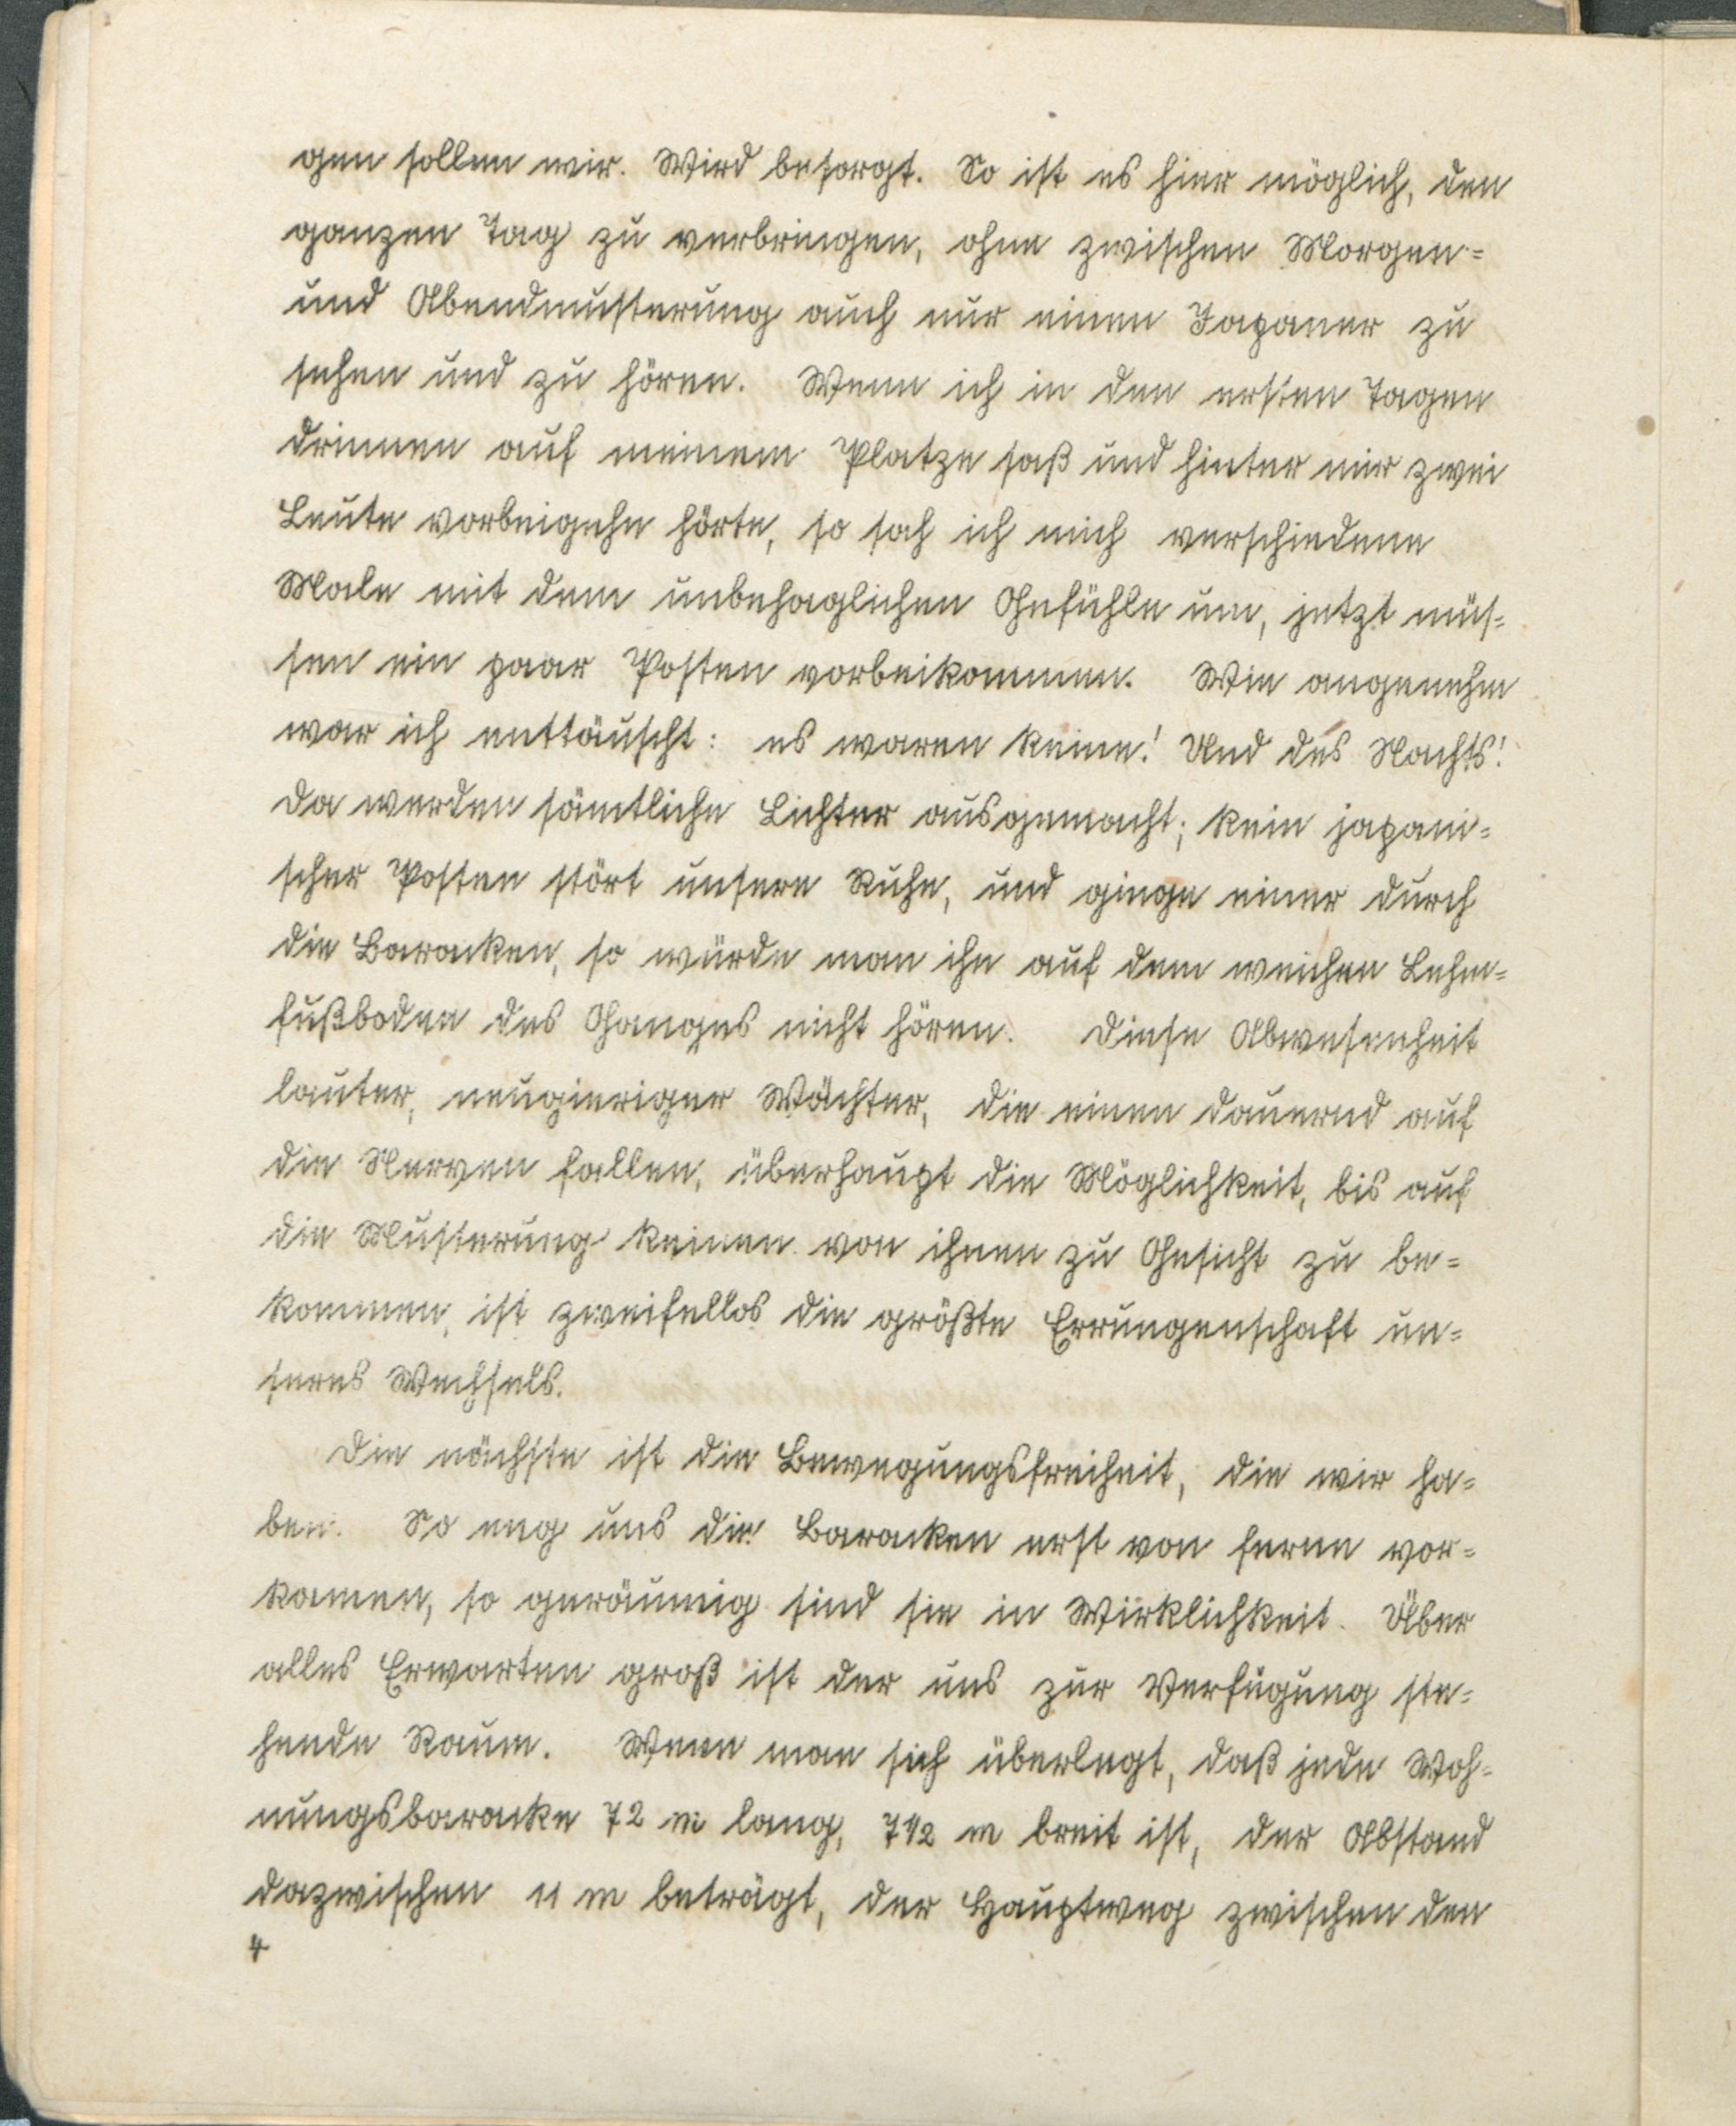 gen sollen wir. Wird besorgt. So ist es hier möglich, den
ganzen Tag zu verbringen, ohne zwischen Morgen-
und Abendmusterung auch nur einen Japaner zu
sehen und zu hören. Wenn ich in den ersten Tagen
drinnen auf meinem Platze saß und hinter mir zwei
Leute vorbeigehn hörte, so sah ich mich verschiedene
Male mit dem unbehaglichen Gefühle um, jetzt müs-
sen ein paar Posten vorbeikommen. Wie angenehm
war ich enttäuscht: es waren keine! Und des Nachts!
Da werden sämtliche Lichter ausgemacht; kein japani-
scher Posten stört unsere Ruhe, und ginge einer durch
die Baracken, so würde man ihn auf dem weichen Lehm-
fußboden des Ganges nicht hören. Diese Abwesenheit
lauter, neugieriger Wächter, die einen dauernd auf
die Nerven fallen, überhaupt die Möglichkeit, bis auf
die Musterung keinen von ihnen zu Gesicht zu be-
kommen, ist zweifellos die größte Errungenschaft un-
seres Wechsels.
Die nächste ist die Bewegungsfreiheit, die wir ha-
ben. So eng uns die Baracken erst von ferne vor-
kamen, so geräumig sind sie in Wirklichkeit. Über
alles Erwarten groß ist der uns zur Verfügung ste-
hende Raum. Wenn man sich überlegt, daß jede Woh-
nungsbaracke 72 m lang, 7 1/2 m breit ist, der Abstand
dazwischen 11 m beträgt, der Hauptweg zwischen den
4